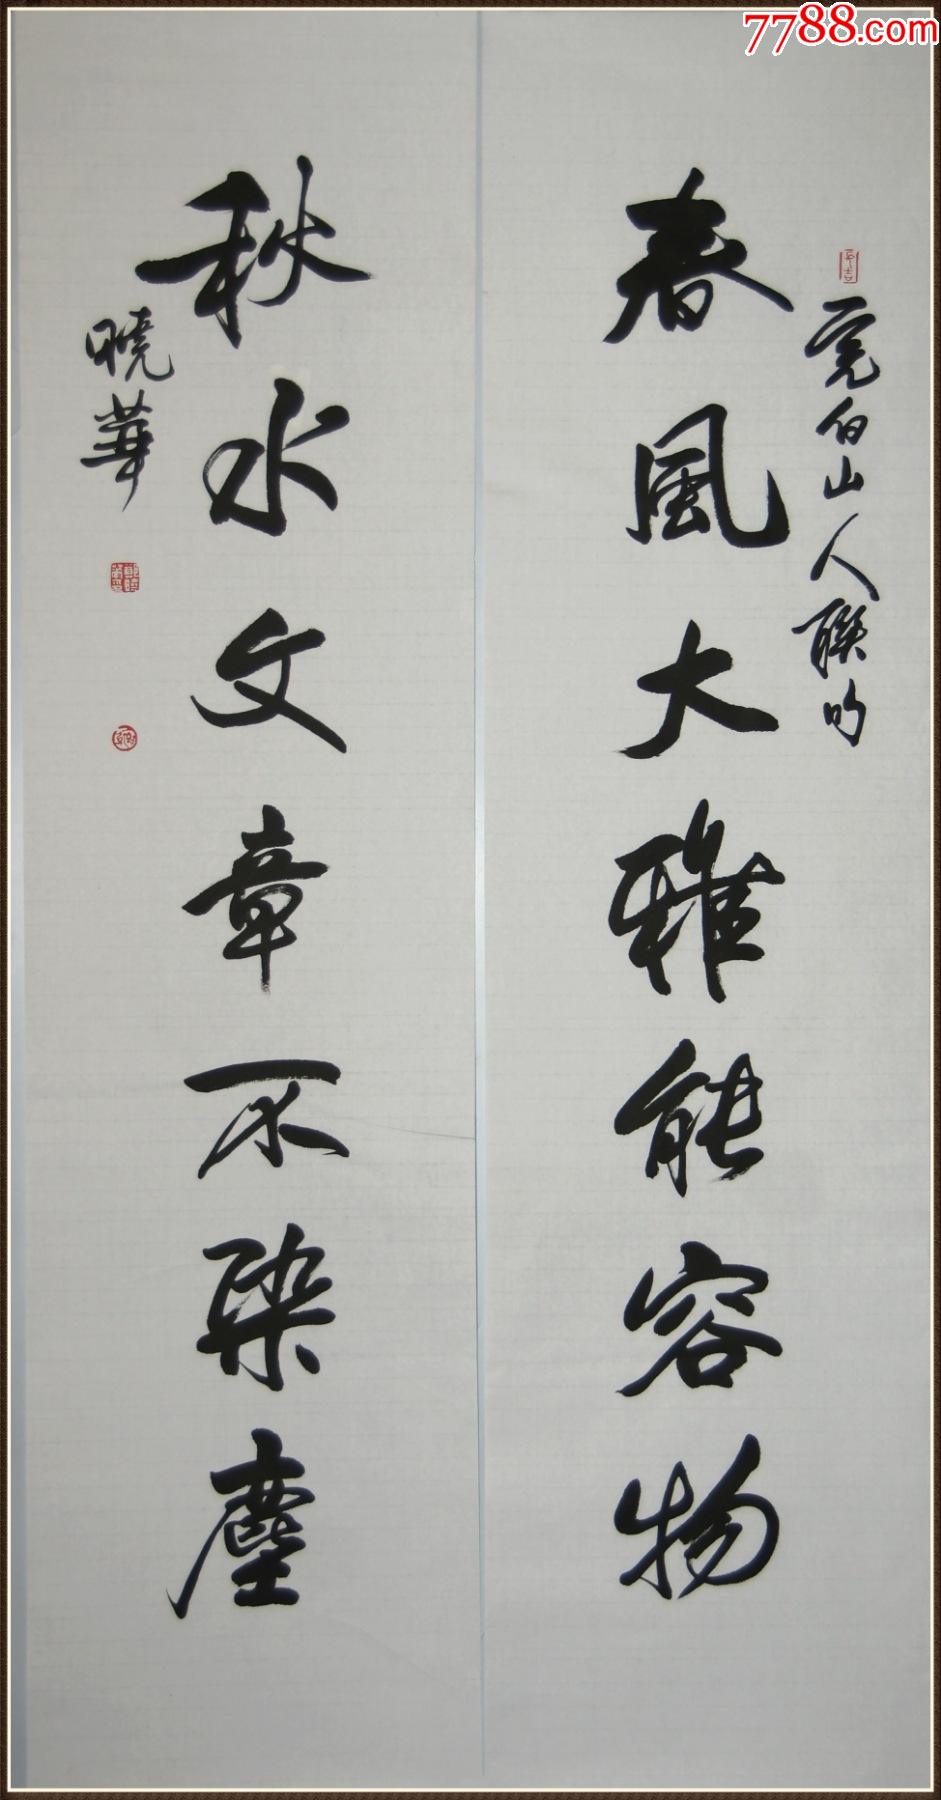 7788.com
春風大雅能容物
完白山人聯句
秋水文章不染塵
曉華